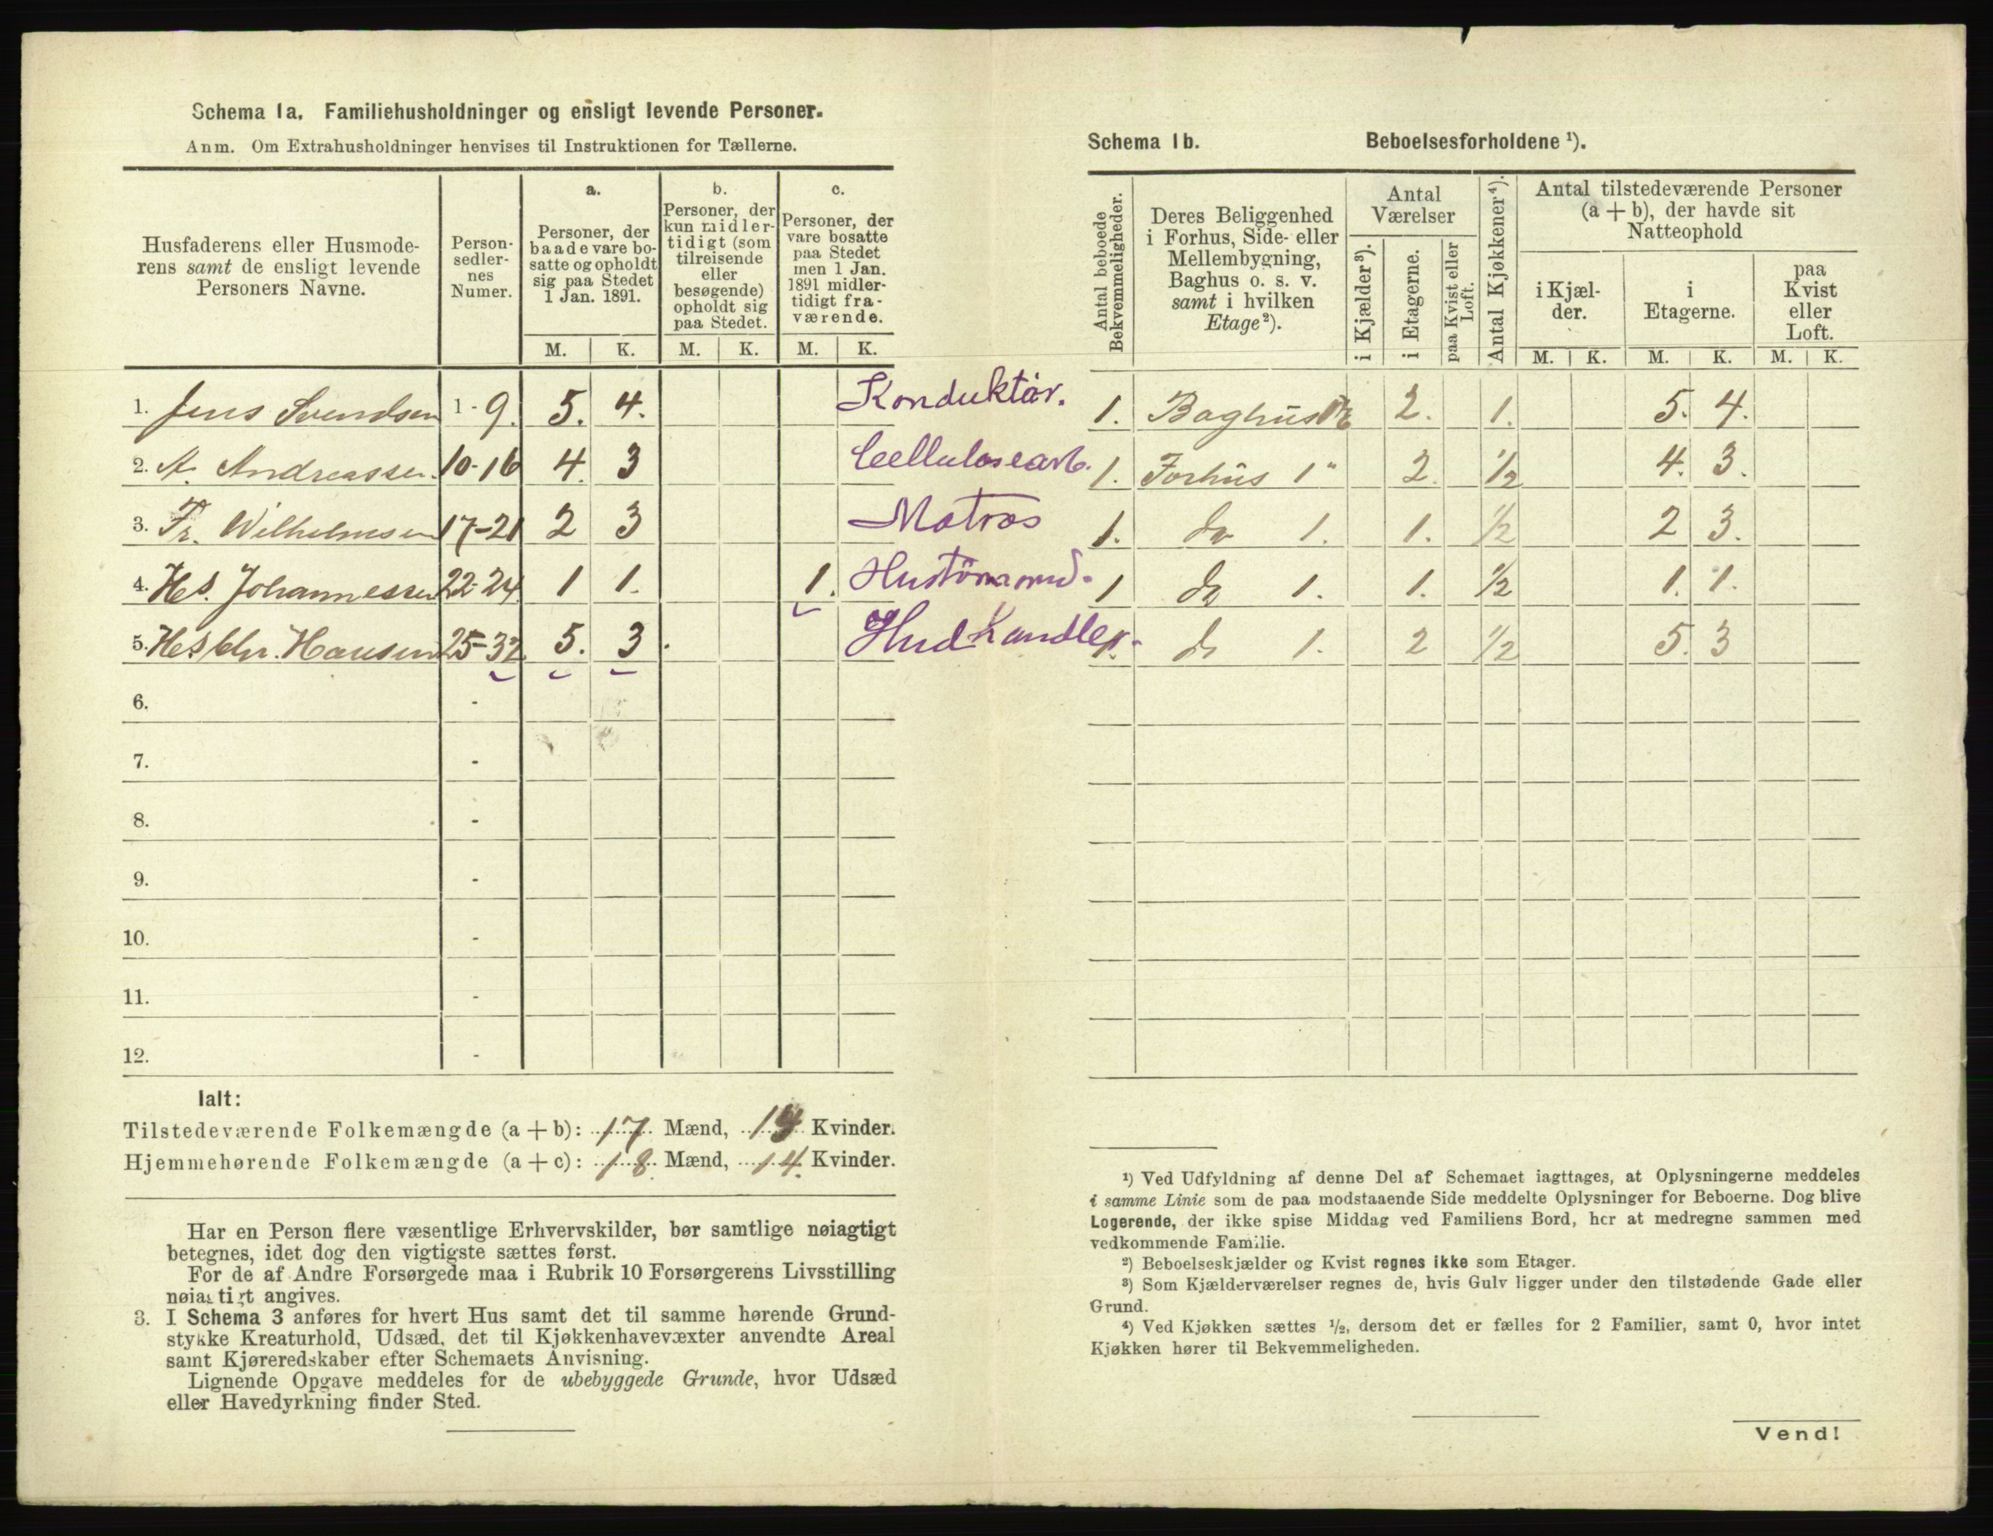 Schema 1a. Familiehusholdninger og ensligt levende Personer.
Anm. Om Extrahusholdninger henvises til Instruktionen for Tællerne.
Husfaderens eller Husmode-
rens samt de ensligt levende
Personers Navne.
Person-
sedler-
nes
Numer.
a.
Personer, der
baade vare bo-
satte og opholdt
sig paa Stedet
1 Jan. 1891.
b.
Personer, der
kun midler-
tidigt (som
tilreisende
eller
besøgende)
opholdt sig
paa Stedet.
c.
Personer, der
vare bosatte
paa Stedet
men 1 Jan.
1891 midler-
tidigt fra-
værende.
M. K. M. K. M. K.
1. Jens Svendsen 1-9. 5. 4. Konduktør.
2. A. Andreassen. 10-16 4. 3 Cellulosearb.
3. Fr. Wilhelmsen 17-21 2 3 Matros
4. Hs. Johannessen 22-24 1 1. 1. Hustömmerm.
5. Hs Chr. Hansen 25-32 5. 3 Hudhandler.
6. -
7. -
8. -
9. -
10. -
11. -
12. -
Ialt:
Tilstedeværende Folkemængde (a + b): 17 Mænd, 14 Kvinder.
Hjemmehørende Folkemængde (a + c): 18 Mænd, 14. Kvinder.
Har en Person flere væsentlige Erhvervskilder, bør samtlige nøiagtigt
betegnes, idet dog den vigtigste sættes først.
For de af Andre Forsørgede maa i Rubrik 10 Forsørgerens Livsstilling
nøiagtigt angives.
3. I Schema 3 anføres for hvert Hus samt det til samme hørende Grund-
stykke Kreaturhold, Udsæd, det til Kjøkkenhavevæxter anvendte Areal
samt Kjøreredskaber efter Schemaets Anvisning.
Lignende Opgave meddeles for de ubebyggede Grunde, hvor Udsæd
eller Havedyrkning finder Sted.
Schema 1b. Beboelsesforholdene ¹).
Antal beboede
Bekvemmeligheder.
Deres Beliggenhed
i Forhus, Side- eller
Mellembygning,
Baghus o. s. v.
samt i hvilken
Etage²).
Antal
Værelser
i Kjælder³).
i Etagerne.
paa Kvist eller
Loft.
Antal Kjøkkener⁴).
Antal tilstedeværende Personer
(a + b), der havde sit
Natteophold
i Kjæl-
der.
i
Etagerne.
paa
Kvist
eller
Loft.
M. K. M. K. M. K.
1. Baghus 2. 1. 5. 4.
1. Forhus 1" 2. ½ 4. 3.
1. do 1. 1. ½ 2 3.
1 do 1. 1. ½ 1. 1.
1. do 1. 2 ½ 5. 3
¹) Ved Udfyldning af denne Del af Schemaet iagttages, at Oplysningerne meddeles
i samme Linie som de paa modstaaende Side meddelte Oplysninger for Beboerne. Dog blive
Logerende, der ikke spise Middag ved Familiens Bord, her at medregne sammen med
vedkommende Familie.
²) Beboelseskjælder og Kvist regnes ikke som Etager.
³) Som Kjælderværelser regnes de, hvis Gulv ligger under den tilstødende Gade eller
Grund.
⁴) Ved Kjøkken sættes ½, dersom det er fælles for 2 Familier, samt 0, hvor intet
Kjøkken hører til Bekvemmeligheden.
Vend!